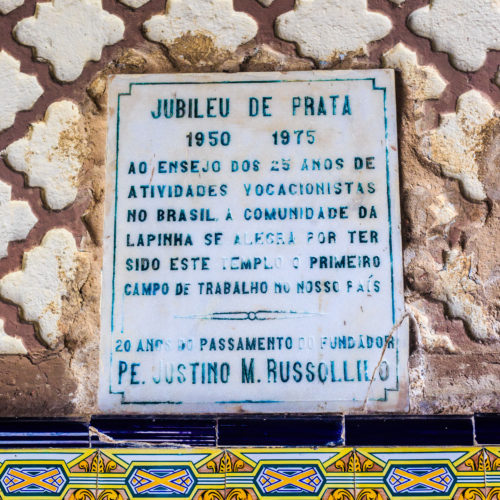 JUBILEU DE PRATA
1950 1975
AO ENSEJO DOS 25 ANOS DE
ATIVIDADES VOCACIONISTAS
NO BRASIL, A COMUNIDADE DA
LAPINHA SE ALEGRA POR TER
SIDO ESTE TEMPLO O PRIMEIRO
CAMPO DE TRABALHO NO NOSSO PAÍS
20 ANOS DO PASSAMENTO DO FUNDADOR
PE. JUSTINO M. RUSSOLLILO